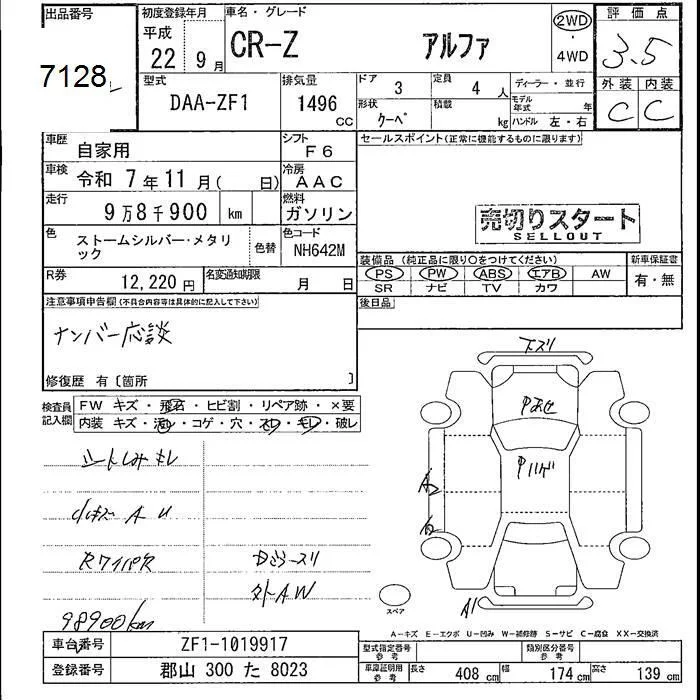 出品番号
7128
初度登録年月
平成
22 9月
車名・グレード
CR-Z アルファ
2WD
・
4WD
評価点
3.5
外装 内装
C C
型式
DAA-ZF1
排気量
1496
cc
ドア 3
定員 4 人
形状 クーペ
積載 kg
ディーラー・並行
モデル年式 年
ハンドル 左・右
車歴 自家用
シフト F6
車検 令和 7年11月( 日)
冷房 AAC
走行 9万8千900 km
燃料 ガソリン
色 ストームシルバー・メタリック
色替
色コード NH642M
R券 12,220円
名変通知期限 月 日
セールスポイント(正常に機能するものに限ります)
売切りスタート
SELLOUT
装備品(純正品に限り○をつけてください)
PS PW ABS エアB AW
SR ナビ TV カワ
新車保証書
有・無
注意事項申告欄(不具合内容等は具体的に記入して下さい)
ナンバー応談
修復歴 有〔箇所 〕
後日品
検査員記入欄
FW キズ・飛石・ヒビ割・リペア跡・×要
内装 キズ・汚レ・コゲ・穴・スレ・キレ・破レ
シートしみキレ
小キズ A U
Rワイパス
98900km
外AW
下スリ
Pあせ
Pハゲ
A2
A1
スペア
A-キズ E-エクボ U-凹み W-補修跡 S-サビ C-腐食 XX-交換済
車台番号 ZF1-1019917
登録番号 郡山 300 た 8023
型式指定番号
参考
類別区分番号
参考
車庫証明用
参考
長さ 408 cm 幅 174 cm 高さ 139 cm